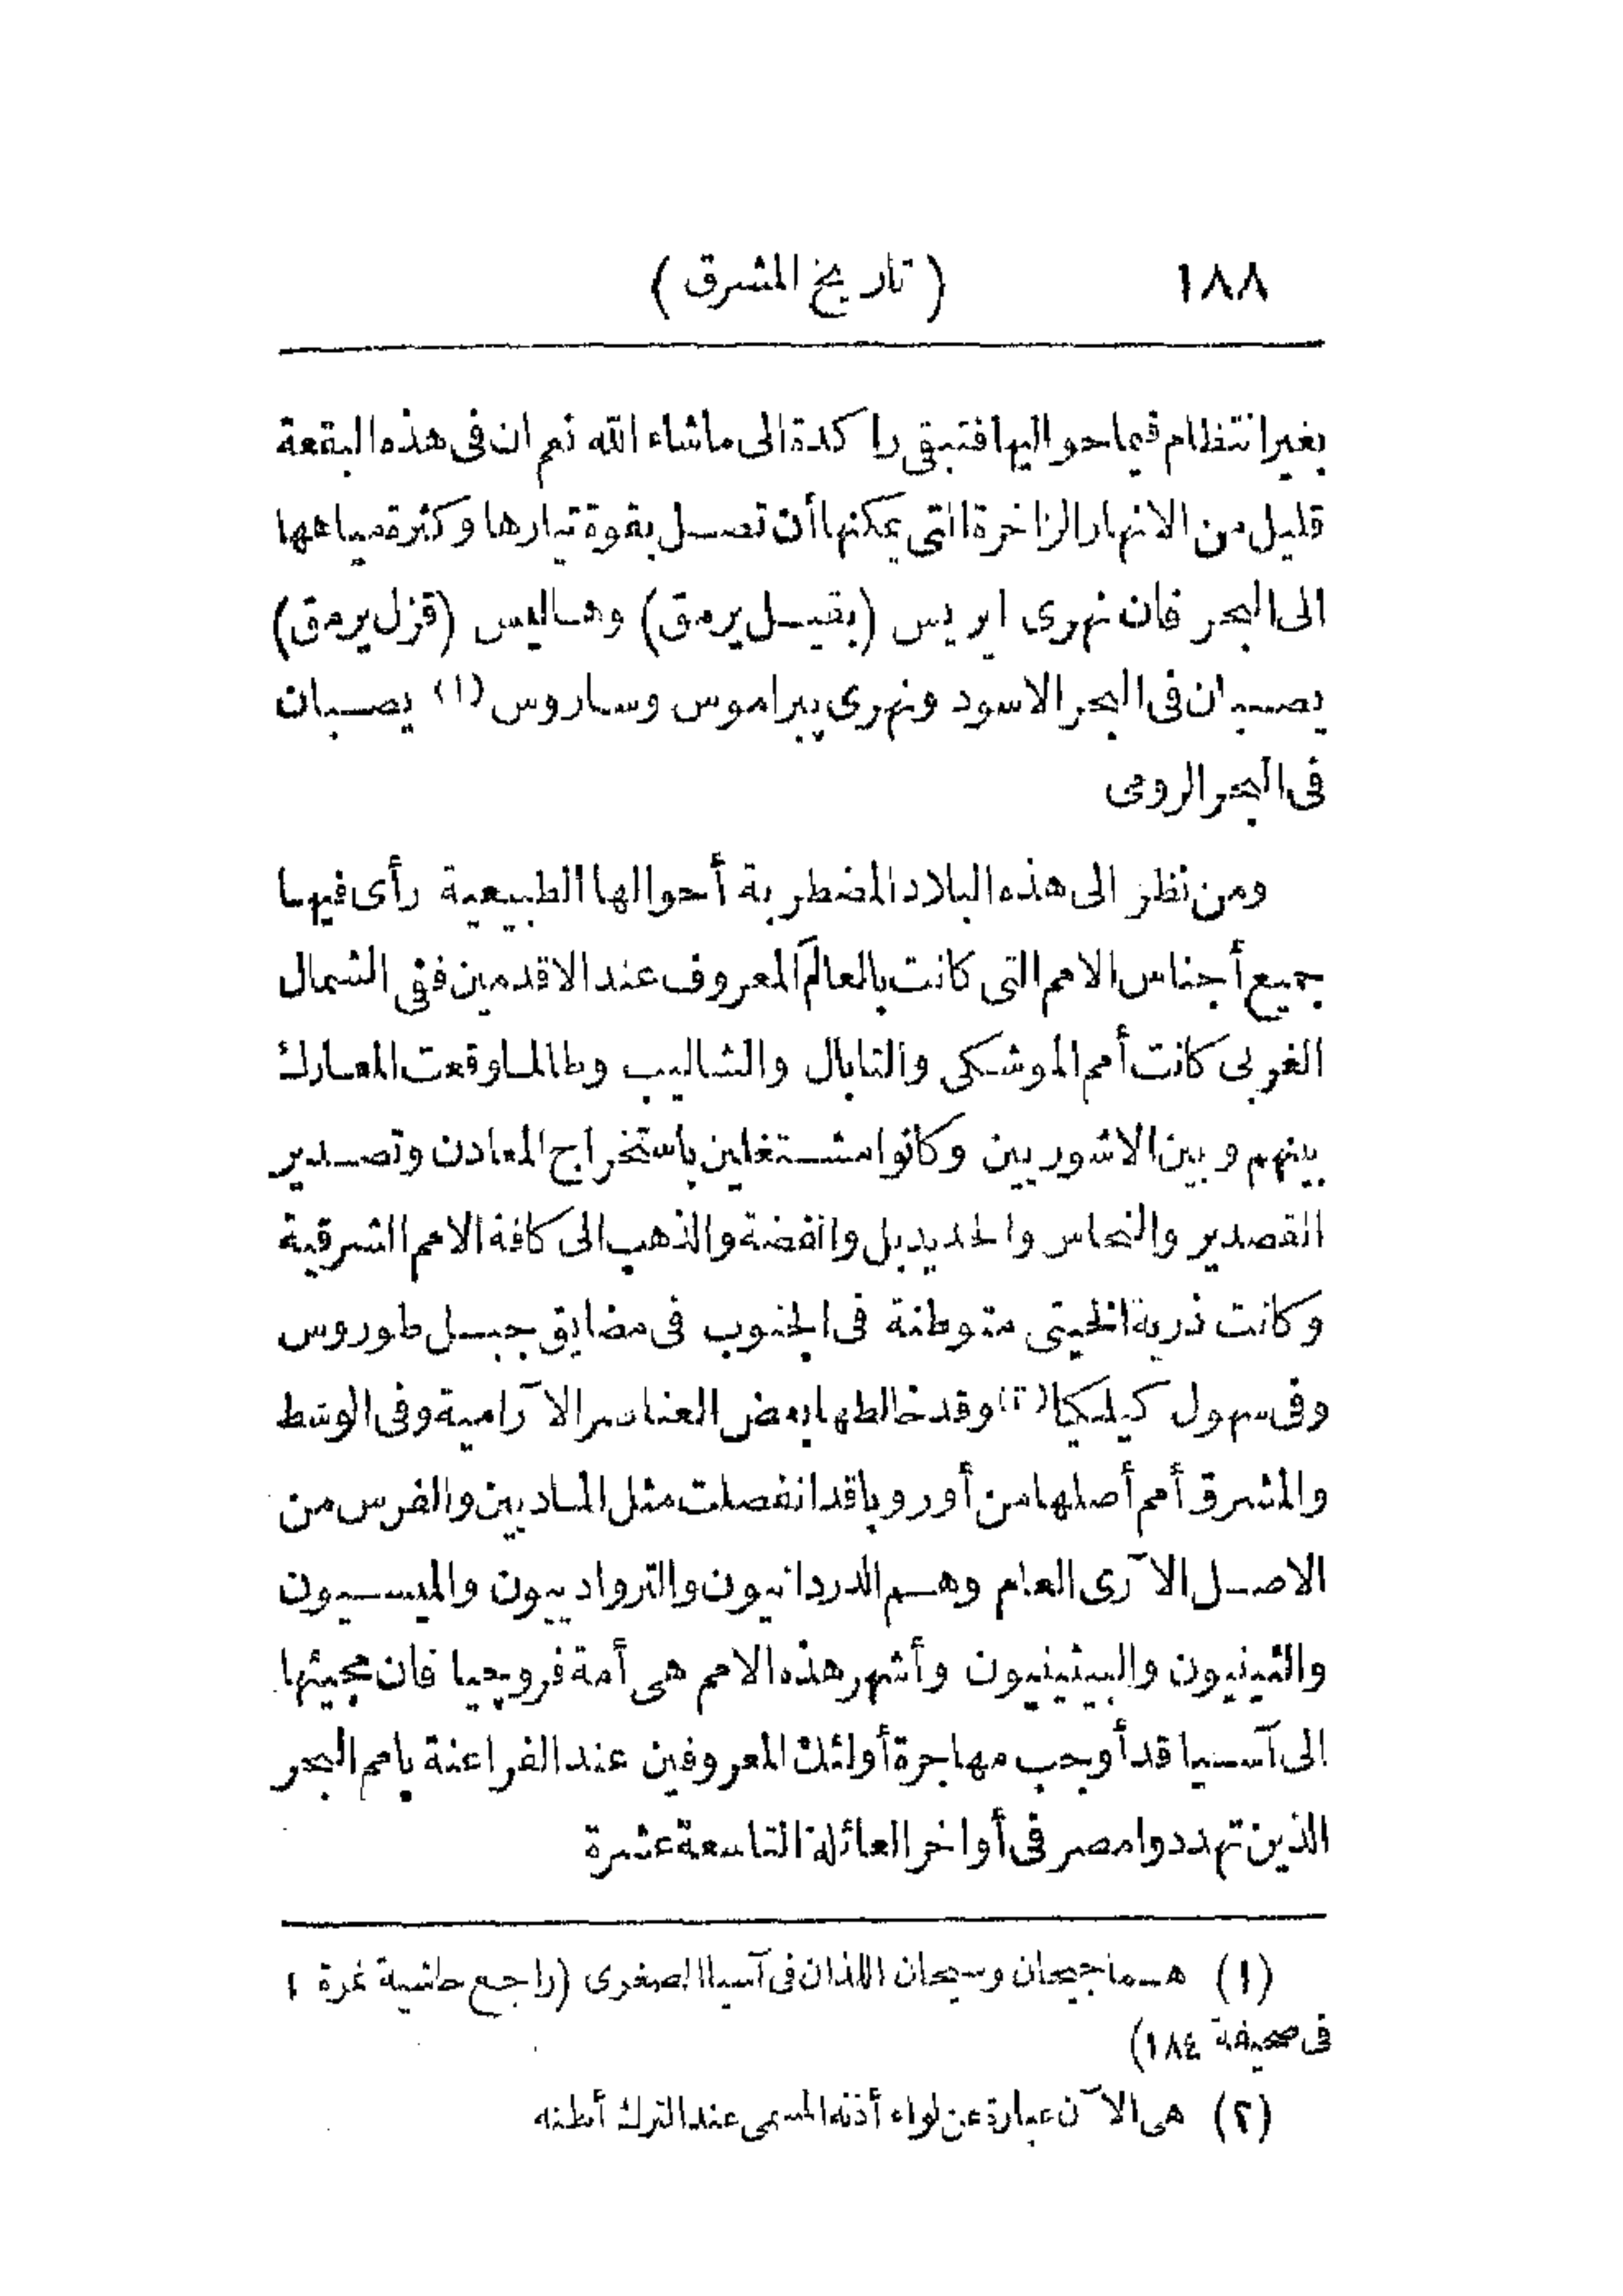 ١٨٨ ( تاريخ المشرق )
بغير انتظام فيما حواليها فتبقى راكدة الى ماشاء الله نعم ان فى هذه البقعة
قليل من الانهار الزاخرة التى يمكنها أن تصل بقوة تيارها وكثرة مياهها
الى البحر فان نهرى ايريس (يقيل يرمق) وهاليس (قزل يرمق)
يصبان فى البحر الاسود ونهرى پيراموس وساروس (١) يصبان
فى البحر الرومى
ومن نظر الى هذه البلاد المضطربة أحوالها الطبيعية رأى فيها
جميع أجناس الامم التى كانت بالعالم المعروف عند الاقدمين ففى الشمال
الغربى كانت أمم الموشكى والتابال والشاليب وطالما وقعت المعارك
بينهم وبين الاشوريين وكانوا مشتغلين باستخراج المعادن وتصدير
القصدير والنحاس والحديد بل والفضة والذهب الى كافة الامم الشرقية
وكانت ذرية الخيتى متوطنة فى الجنوب فى مضايق جبل طوروس
وفى سهول كيليكيا (٢) وقد خالطها بعض العناصر الآرامية وفى الوسط
والمشرق أمم أصلها من أوروبا قد انفصلت مثل الماديين والفرس من
الاصل الآرى العام وهم الدردانيون والترواديون والميسيون
والثينيون والبيثينيون وأشهر هذه الامم هى أمة فروجيا فان مجيئها
الى آسيا قد أوجب مهاجرة أولئك المعروفين عند الفراعنة بامم البحر
الذين تهددوا مصر فى أواخر العائلة التاسعة عشرة
(١) هما جيحان وسيحان اللذان فى آسيا الصغرى (راجع حاشية نمرة ١
فى صحيفة ١٨٤)
(٢) هى الآن عبارة عن لواء أذنه المسمى عند الترك أطنه